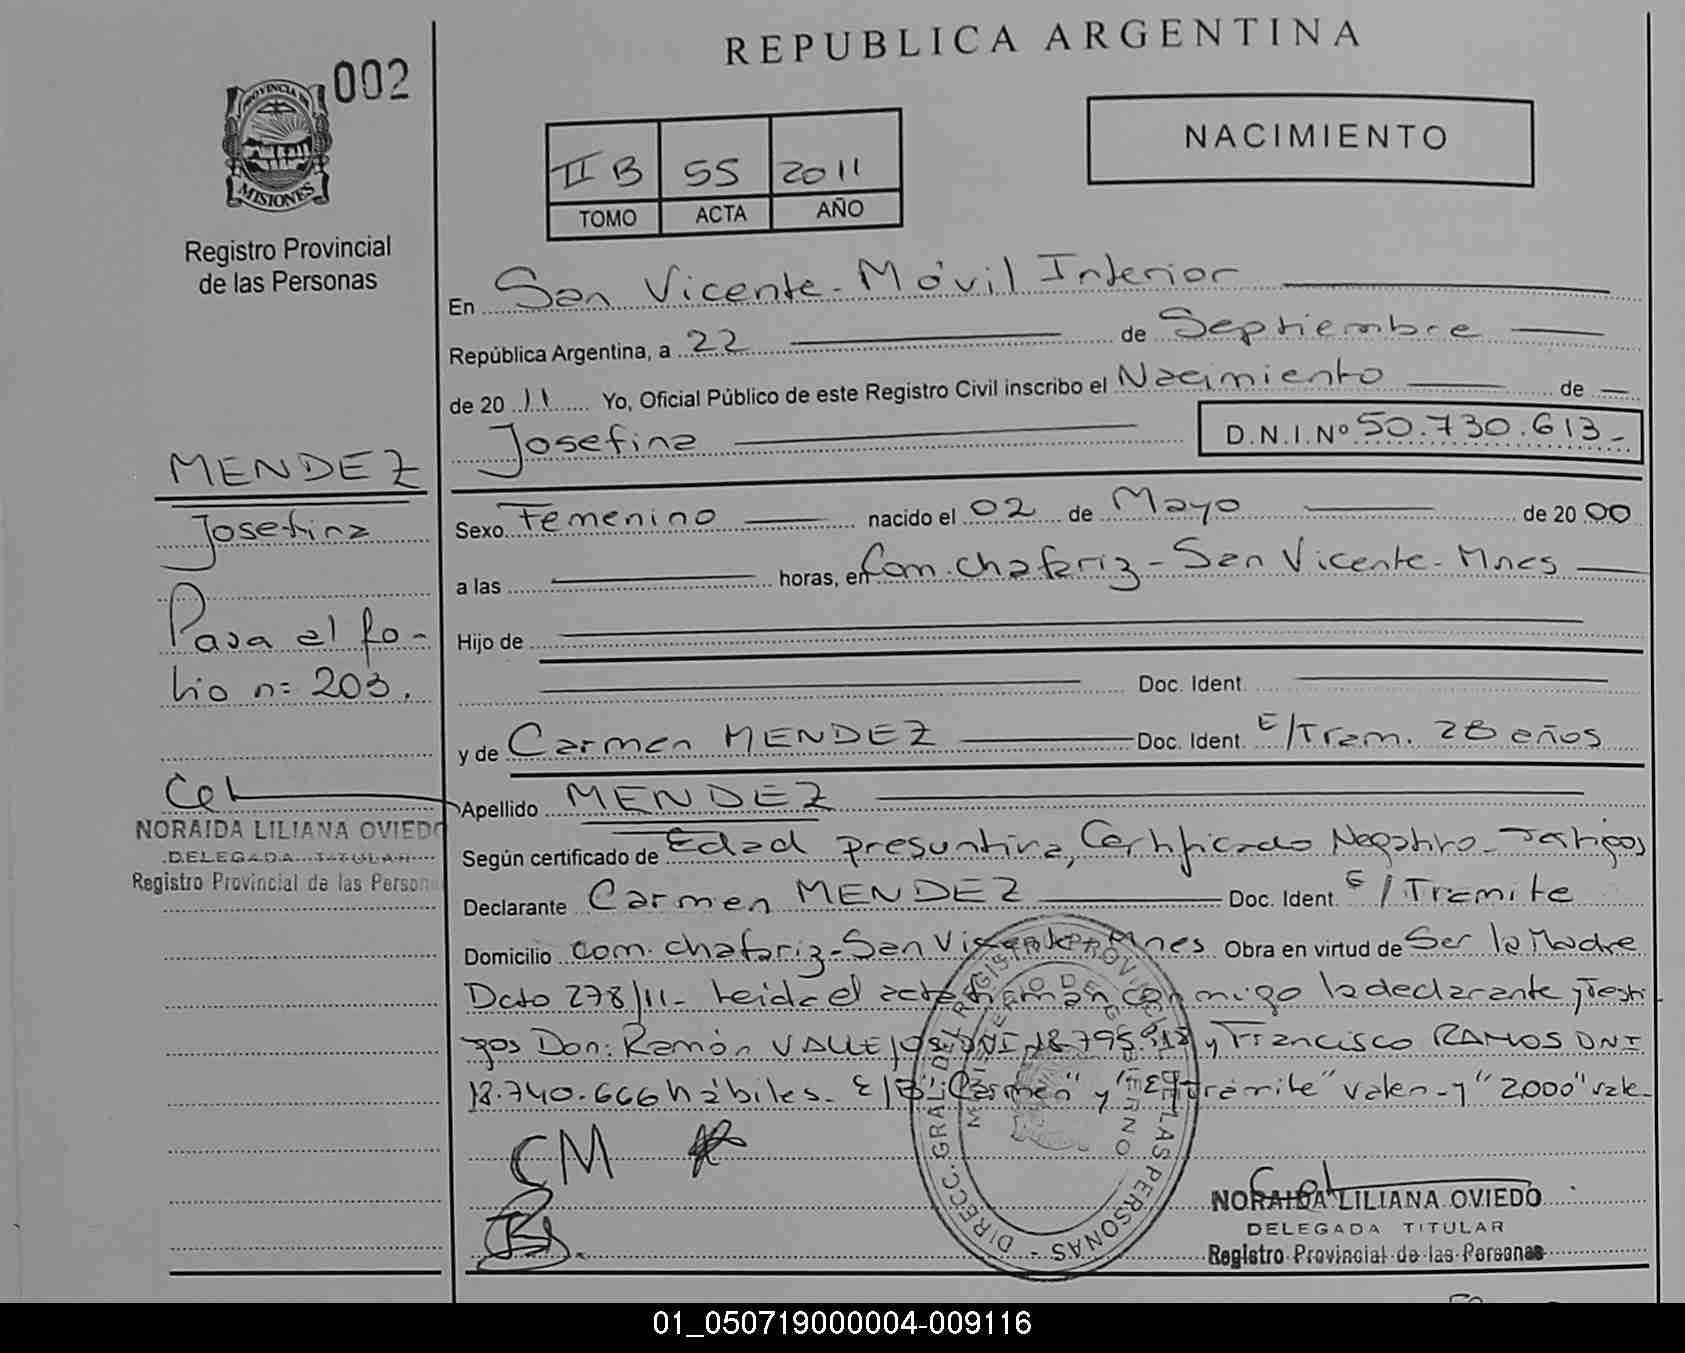 REPUBLICA ARGENTINA
002
PROVINCIA DE
MISIONES
Registro Provincial
de las Personas
II B 55 2011
TOMO ACTA AÑO
NACIMIENTO
En San Vicente - Móvil Interior
República Argentina, a 22 de Septiembre
de 20 11 Yo, Oficial Público de este Registro Civil inscribo el Nacimiento de
Josefina D.N.I. Nº 50.730.613-
Sexo Femenino nacido el 02 de Mayo de 20 00
a las horas, en Com. Chafariz - San Vicente - Mnes
Hijo de
Doc. Ident.
y de Carmen MENDEZ Doc. Ident. E/Tram. 28 años
Apellido MENDEZ
Según certificado de Edad presuntiva, Certificado Negativo - Testigos
Declarante Carmen MENDEZ Doc. Ident. E/Tramite
Domicilio Com. Chafariz - San Vicente - Mnes Obra en virtud de Ser la Madre
Dcto 278/11 - Leida el acta firman conmigo la declarante y Testi
gos Don: Ramón VALLEJOS DNI 18.795.918 y Francisco RAMOS DNI
18.740.666 hábiles. E/B "Carmen" y "E/tramite" valen - y "2000" vale -
MENDEZ
Josefina
Pasa al fo-
lio n= 203.
NORAIDA LILIANA OVIEDO
DELEGADA TITULAR
Registro Provincial de las Person
CM
DIRECC. GRAL. DEL REGISTRO PROV. DE LAS PERSONAS -
MINISTERIO DE GOBIERNO
NORAIDA LILIANA OVIEDO
DELEGADA TITULAR
Registro Provincial de las Personas
01_050719000004-009116